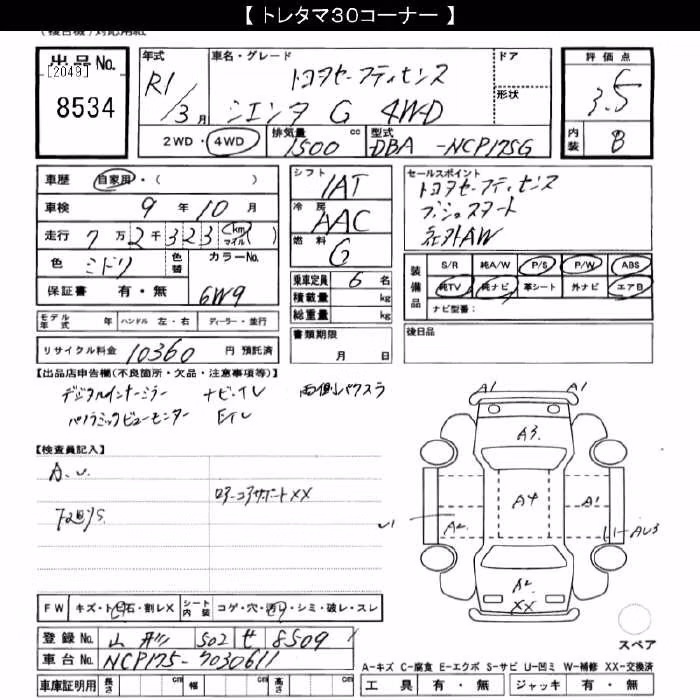 【 トレタマ30コーナー 】
出品 No.
[2049]
8534
年式 車名・グレード ドア 評価点
R1/3月 トヨタセーフティセンス 3.5
シエンタ G 4WD 形状
2WD・4WD 排気量 1500 cc 型式 DBA -NCP175G 内装 B
車歴 自家用・( )
車検 9年 10月
走行 7万2千323 (km マイル)( )
色 ミドリ 色替 カラーNo.
保証書 有・無 6W9
シフト IAT
冷房 AAC
燃料 G
乗車定員 6 名
積載量 kg
総重量 kg
セールスポイント
トヨタセーフティセンス
プッシュスタート
社外AW
装備品 S/R 純A/W P/S P/W ABS
純TV 純ナビ 革シート 外ナビ エアB
ナビ型番:
モデル年式 年 ハンドル 左・右 ディーラー・並行
リサイクル料金 10360 円 預託済
書類期限
月 日
後日品
【出品店申告欄(不良箇所・欠品・注意事項等)】
デジタルインナーミラー ナビ・TV 両側パワスラ
パノラミックビューモニター ETC
【検査員記入】
A.U.
ロアーコアサポートXX
A1 A1
A3
A4
A2 A1
U1
A2
XX
FW キズ・ト石・割レX シート内装 コゲ・穴・汚レ・シミ・破レ・スレ
登録 No. 山形 502 せ 8509
車台 No. NCP175-7030611
車庫証明用 長さ cm 幅 cm 高さ cm
スペア
A-キズ C-腐食 E-エクボ S-サビ U-凹ミ W-補修 XX-交換済
工具 有・無 ジャッキ 有・無